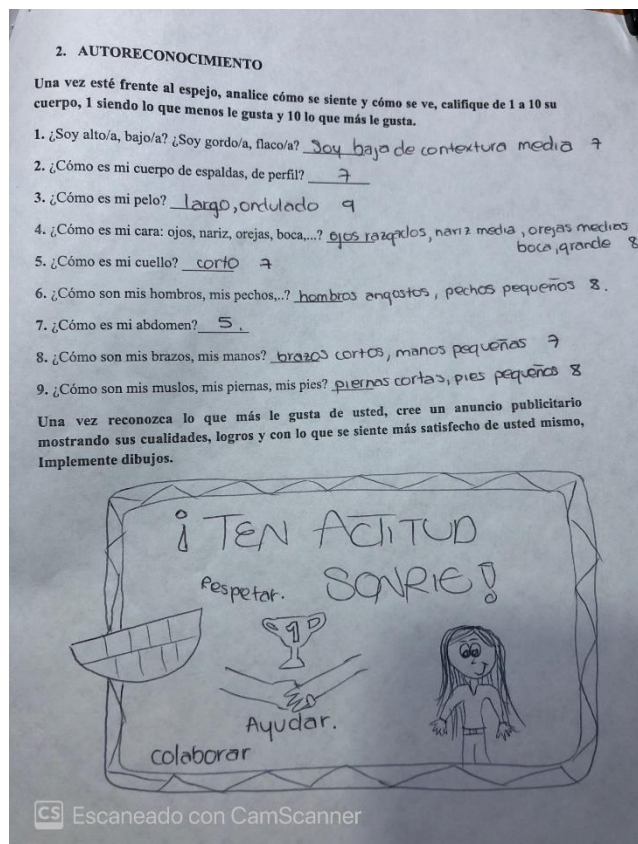 2. AUTORECONOCIMIENTO
Una vez esté frente al espejo, analice cómo se siente y cómo se ve, califique de 1 a 10 su
cuerpo, 1 siendo lo que menos le gusta y 10 lo que más le gusta.
1. ¿Soy alto/a, bajo/a? ¿Soy gordo/a, flaco/a? Soy baja de contextura media 7
2. ¿Cómo es mi cuerpo de espaldas, de perfil? 7
3. ¿Cómo es mi pelo? largo, ondulado 9
4. ¿Cómo es mi cara: ojos, nariz, orejas, boca,...? ojos razgados, nariz media, orejas medias
boca, grande 8
5. ¿Cómo es mi cuello? corto 7
6. ¿Cómo son mis hombros, mis pechos,..? hombros angostos, pechos pequeños 8.
7. ¿Cómo es mi abdomen? 5.
8. ¿Cómo son mis brazos, mis manos? brazos cortos, manos pequeñas 7
9. ¿Cómo son mis muslos, mis piernas, mis pies? piernas cortas, pies pequeños 8
Una vez reconozca lo que más le gusta de usted, cree un anuncio publicitario
mostrando sus cualidades, logros y con lo que se siente más satisfecho de usted mismo,
Implemente dibujos.
¡TEN ACTITUD
Respetar. SONRIE!
1
Ayudar.
colaborar
CS Escaneado con CamScanner